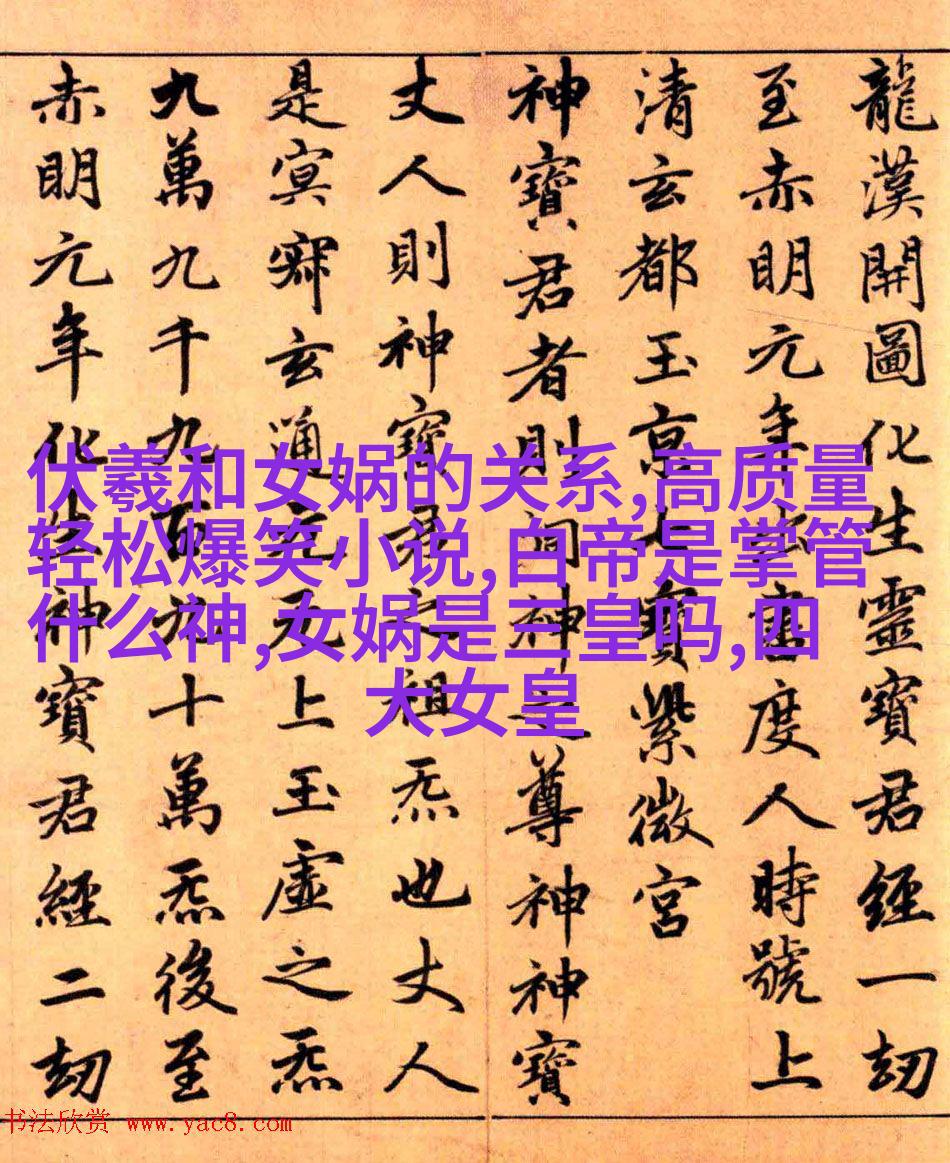 龍漢開圖化生靈寶君經一劫
至赤明元年出書度人時號上
清玄都玉京七寶紫微宮
神寶君者則洞神之尊神神寶
丈人則神寶君之祖炁也丈人
是冥寂玄通元无上玉虛之炁
九萬九千九百九十萬炁後至
赤明元年化生神寶君經二劫
伏羲和女娲的关系,高质量
轻松爆笑小说,白帝是掌管
什么神,女娲是三皇吗,四
大女皇
书法欣赏 www.yac8.com